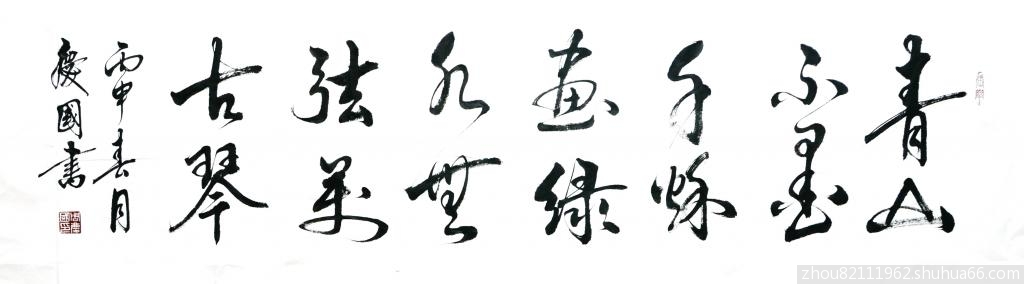 青山
不墨
千秋
画绿
水無
弦萬
古琴
丙申春月
慶國書
zhou82111962.shuhua66.com